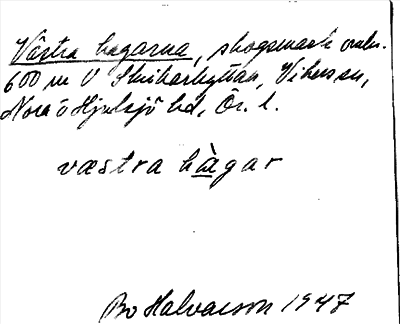 Västra hagarna, skogsmark omkr.
600 m V Skikarhyttan, Vikers sn,
Nora o Hjulsjö hd, Ör. l.
væstra hàgar
Bo Halvarson 1947